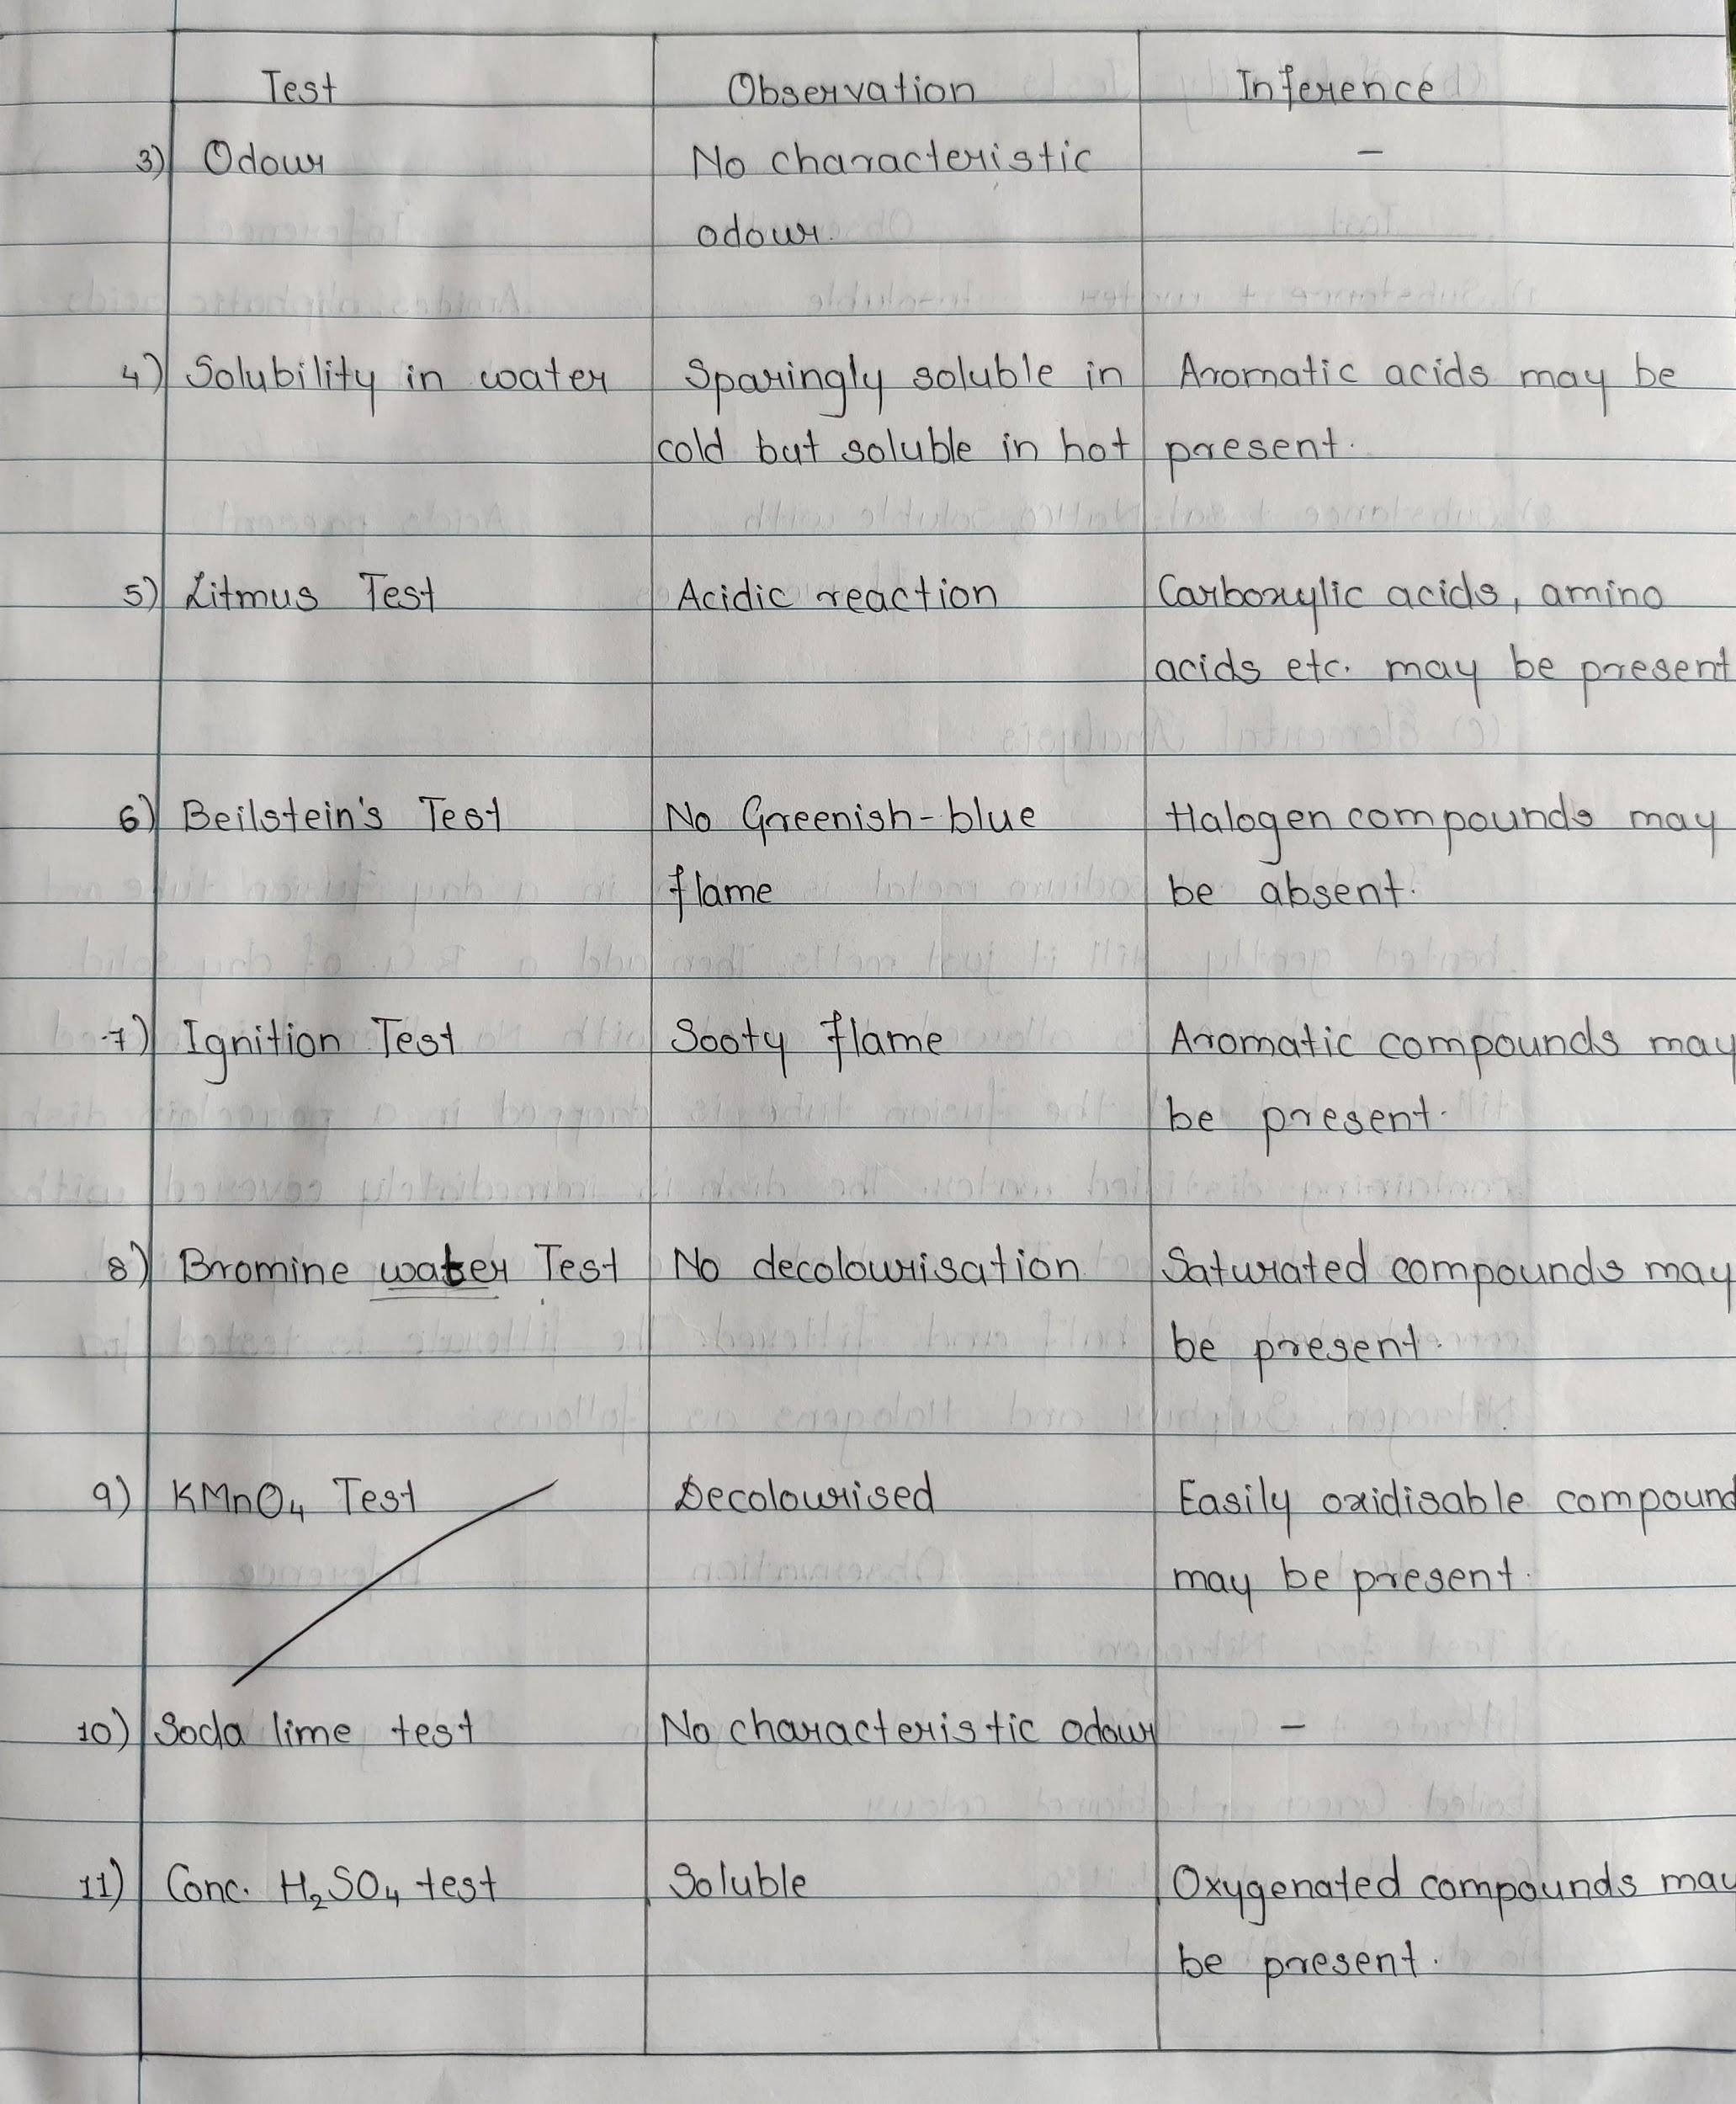 Test Observation Inference
3) Odour No characteristic –
odour.
4) Solubility in water Sparingly soluble in Aromatic acids may be
cold but soluble in hot present.
5) Litmus Test Acidic reaction Carboxylic acids, amino
acids etc. may be present
6) Beilstein's Test No Greenish-blue Halogen compounds may
flame be absent.
7) Ignition Test Sooty flame Aromatic compounds may
be present.
8) Bromine water Test No decolourisation Saturated compounds may
be present.
9) KMnO4 Test Decolourised Easily oxidisable compound
may be present.
10) Soda lime test No characteristic odour –
11) Conc. H2SO4 test Soluble Oxygenated compounds may
be present.